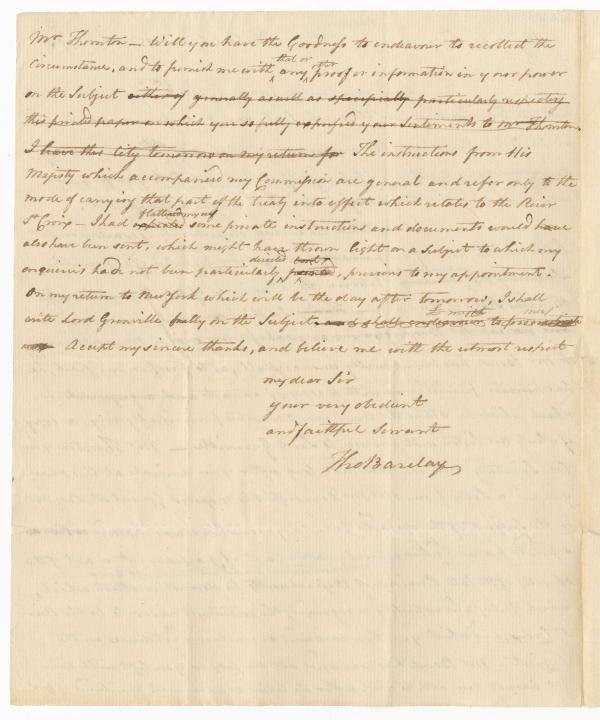 Mr Thornton — Will you have the Goodness to endeavour to recollect the
Circumstance, and to furnish me with that or any other proof or information in your power
on the Subject either of generally as well as specifically particularly respecting
this printed paper on which you so fully expressed your Sentiments to Mr Thornton.
I leave this City tomorrow on my return for The instructions from His
Majesty which accompanied my Commission are general and refer only to the
mode of carrying that part of the treaty into effect which relates to the River
St Croix — I had expected flattered myself some private instructions and documents would have
also have been sent, which might have thrown light on a Subject to which my
enquiries had not been particularly directed pointed, previous to my appointment.
On my return to New York which will be the day after tomorrow, I shall
write Lord Grenville fully on the Subject. and shall endeavour to
Accept my sincere thanks, and believe me with the utmost respect
my dear Sir
your very obedient
and faithful Servant
Tho Barclay